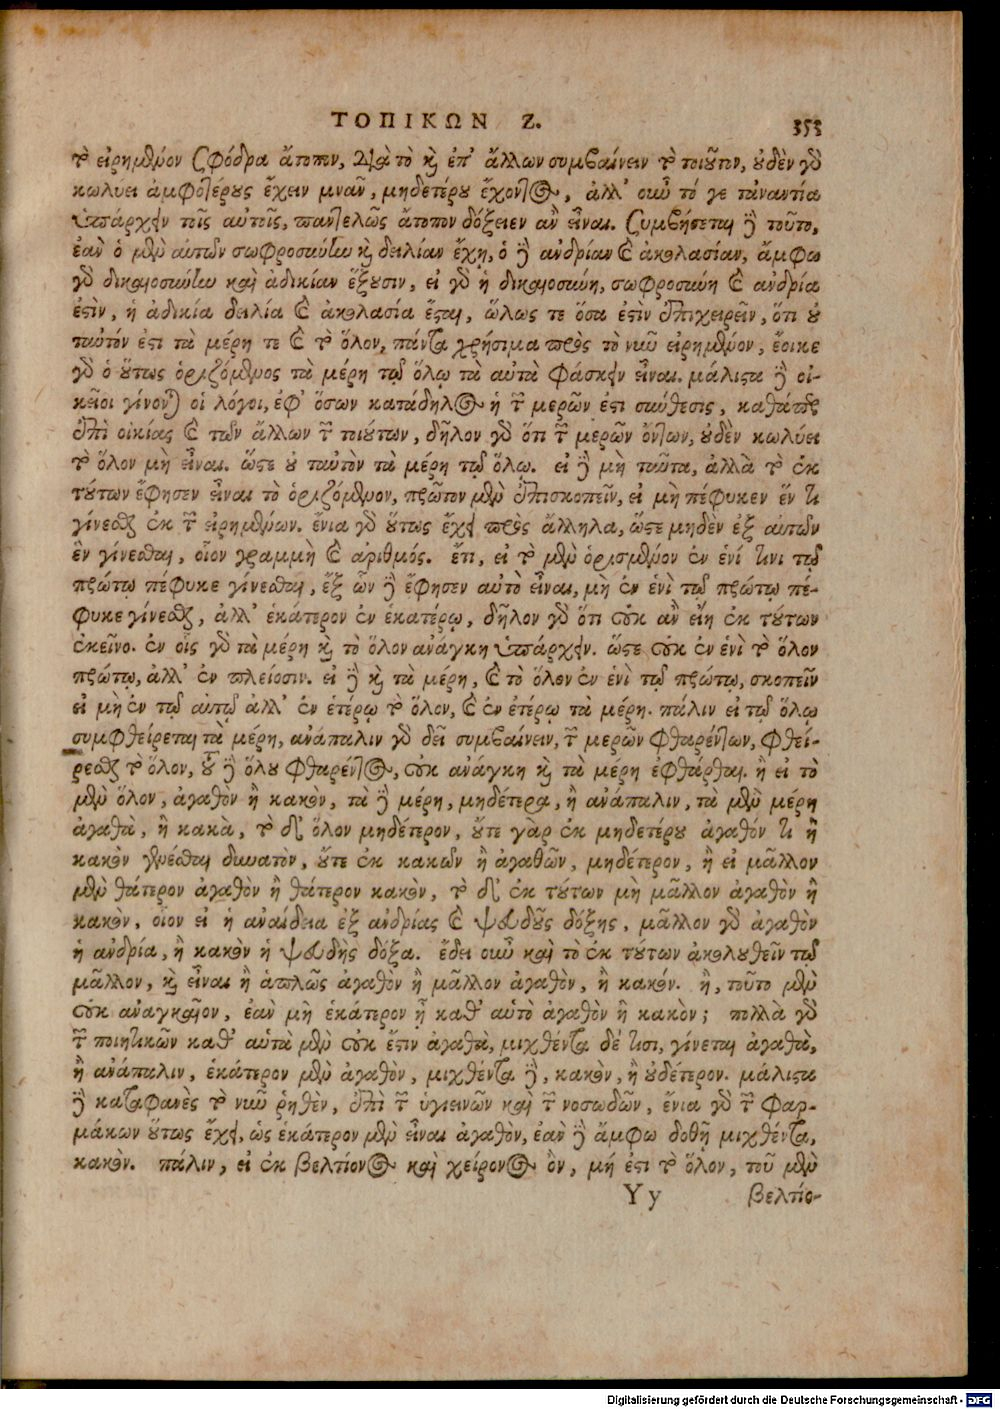 ΤΟΠΙΚΩΝ Ζ. 353
τὸ εἰρημένον σφόδρα ἄτοπον, διὰ τὸ καὶ ἐπ' ἄλλων συμβαίνειν τὸ τοιοῦτον, οὐδὲν γὰρ
κωλύει ἀμφοτέρους ἔχειν μνᾶν, μηδετέρου ἔχοντος, ἀλλ' οὖν τό γε τἀναντία
ὑπάρχειν τοῖς αὐτοῖς, παντελῶς ἄτοπον δόξειεν ἂν εἶναι. συμβήσεται δὲ τοῦτο,
ἐὰν ὁ μὲν αὐτῶν σωφροσύνην καὶ δειλίαν ἔχῃ, ὁ δὲ ἀνδρίαν καὶ ἀκολασίαν, ἄμφω
γὰρ δικαιοσύνην καὶ ἀδικίαν ἕξουσιν, εἰ γὰρ ἡ δικαιοσύνη, σωφροσύνη καὶ ἀνδρία
ἐστὶν, ἡ ἀδικία δειλία καὶ ἀκολασία ἔσται, ὥλως τε ὅσα ἐστὶν ἐπιχειρεῖν, ὅτι οὐ
ταὐτόν ἐστι τὰ μέρη τε καὶ τὸ ὅλον, πάντα χρήσιμα πρὸς τὸ νῦν εἰρημένον, ἔοικε
γὰρ ὁ οὕτως ὁριζόμενος τὰ μέρη τῷ ὅλῳ τὰ αὐτὰ φάσκειν εἶναι. μάλιστα δὲ οἰ-
κεῖοι γίνονται οἱ λόγοι, ἐφ' ὅσων κατάδηλος ἡ τῶν μερῶν ἐστι σύνθεσις, καθάπερ
ἐπὶ οἰκίας καὶ τῶν ἄλλων τῶν τοιούτων, δῆλον γὰρ ὅτι τῶν μερῶν ὄντων, οὐδὲν κωλύει
τὸ ὅλον μὴ εἶναι. ὥστε οὐ ταὐτὸν τὰ μέρη τῷ ὅλῳ. εἰ δὲ μὴ ταῦτα, ἀλλὰ τὸ ἐκ
τούτων ἔφησεν εἶναι τὸ ὁριζόμενον, πρῶτον μὲν ἐπισκοπεῖν, εἰ μὴ πέφυκεν ἕν τι
γίνεσθαι ἐκ τῶν εἰρημένων. ἔνια γὰρ οὕτως ἔχει πρὸς ἄλληλα, ὥστε μηδὲν ἐξ αὐτῶν
ἓν γίνεσθαι, οἷον γραμμὴ καὶ ἀριθμός. ἔτι, εἰ τὸ μὲν ὁρισμένον ἐν ἑνί τινι τῷ
πρώτῳ πέφυκε γίνεσθαι, ἐξ ὧν δὲ ἔφησεν αὐτὸ εἶναι, μὴ ἐν ἑνὶ τῷ πρώτῳ πέ-
φυκε γίνεσθαι, ἀλλ' ἑκάτερον ἐν ἑκατέρῳ, δῆλον γὰρ ὅτι οὐκ ἂν εἴη ἐκ τούτων
ἐκεῖνο. ἐν οἷς γὰρ τὰ μέρη καὶ τὸ ὅλον ἀνάγκη ὑπάρχειν. ὥστε οὐκ ἐν ἑνὶ τὸ ὅλον
πρώτῳ, ἀλλ' ἐν πλείοσιν. εἰ δὲ καὶ τὰ μέρη, καὶ τὸ ὅλον ἐν ἑνὶ τῷ πρώτῳ, σκοπεῖν
εἰ μὴ ἐν τῷ αὐτῷ ἀλλ' ἐν ἑτέρῳ τὸ ὅλον, καὶ ἐν ἑτέρῳ τὰ μέρη. πάλιν εἰ τῷ ὅλῳ
συμφθείρεται τὰ μέρη, ἀνάπαλιν γὰρ δεῖ συμβαίνειν, τῶν μερῶν φθαρέντων, φθεί-
ρεσθαι τὸ ὅλον, τοῦ δὲ ὅλου φθαρέντος, οὐκ ἀνάγκη καὶ τὰ μέρη ἐφθάρθαι. ἢ εἰ τὸ
μὲν ὅλον, ἀγαθὸν ἢ κακὸν, τὰ δὲ μέρη, μηδέτερα, ἢ ἀνάπαλιν, τὰ μὲν μέρη
ἀγαθὰ, ἢ κακὰ, τὸ δ' ὅλον μηδέτερον, οὔτε γὰρ ἐκ μηδετέρου ἀγαθόν τι ἢ
κακὸν γενέσθαι δυνατὸν, οὔτε ἐκ κακῶν ἢ ἀγαθῶν, μηδέτερον, ἢ εἰ μᾶλλον
μὲν θάτερον ἀγαθὸν ἢ θάτερον κακὸν, τὸ δ' ἐκ τούτων μὴ μᾶλλον ἀγαθὸν ἢ
κακὸν, οἷον εἰ ἡ ἀναίδεια ἐξ ἀνδρίας καὶ ψευδοῦς δόξης, μᾶλλον γὰρ ἀγαθὸν
ἡ ἀνδρία, ἢ κακὸν ἡ ψευδὴς δόξα. ἔδει οὖν καὶ τὸ ἐκ τούτων ἀκολουθεῖν τῷ
μᾶλλον, καὶ εἶναι ἢ ἁπλῶς ἀγαθὸν ἢ μᾶλλον ἀγαθὸν, ἢ κακόν. ἢ, τοῦτο μὲν
οὐκ ἀναγκαῖον, ἐὰν μὴ ἑκάτερον ᾖ καθ' αὑτὸ ἀγαθὸν ἢ κακὸν; πολλὰ γὰρ
τῶν ποιητικῶν καθ' αὑτὰ μὲν οὐκ ἔστιν ἀγαθὰ, μιχθέντα δέ τισι, γίνεται ἀγαθὰ,
ἢ ἀνάπαλιν, ἑκάτερον μὲν ἀγαθὸν, μιχθέντα δὲ, κακὸν, ἢ οὐδέτερον. μάλιστα
δὲ καταφανὲς τὸ νῦν ῥηθὲν, ἐπὶ τῶν ὑγιεινῶν καὶ τῶν νοσωδῶν, ἔνια γὰρ τῶν φαρ-
μάκων οὕτως ἔχει, ὡς ἑκάτερον μὲν εἶναι ἀγαθὸν, ἐὰν δὲ ἄμφω δοθῇ μιχθέντα,
κακὸν. πάλιν, εἰ ἐκ βελτίονος καὶ χείρονος ὂν, μή ἐστι τὸ ὅλον, τοῦ μὲν
Yy βελτίο-
Digitalisierung gefördert durch die Deutsche Forschungsgemeinschaft - DFG